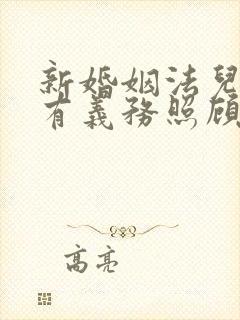 新婚姻法兒
有義務照顧
高亮